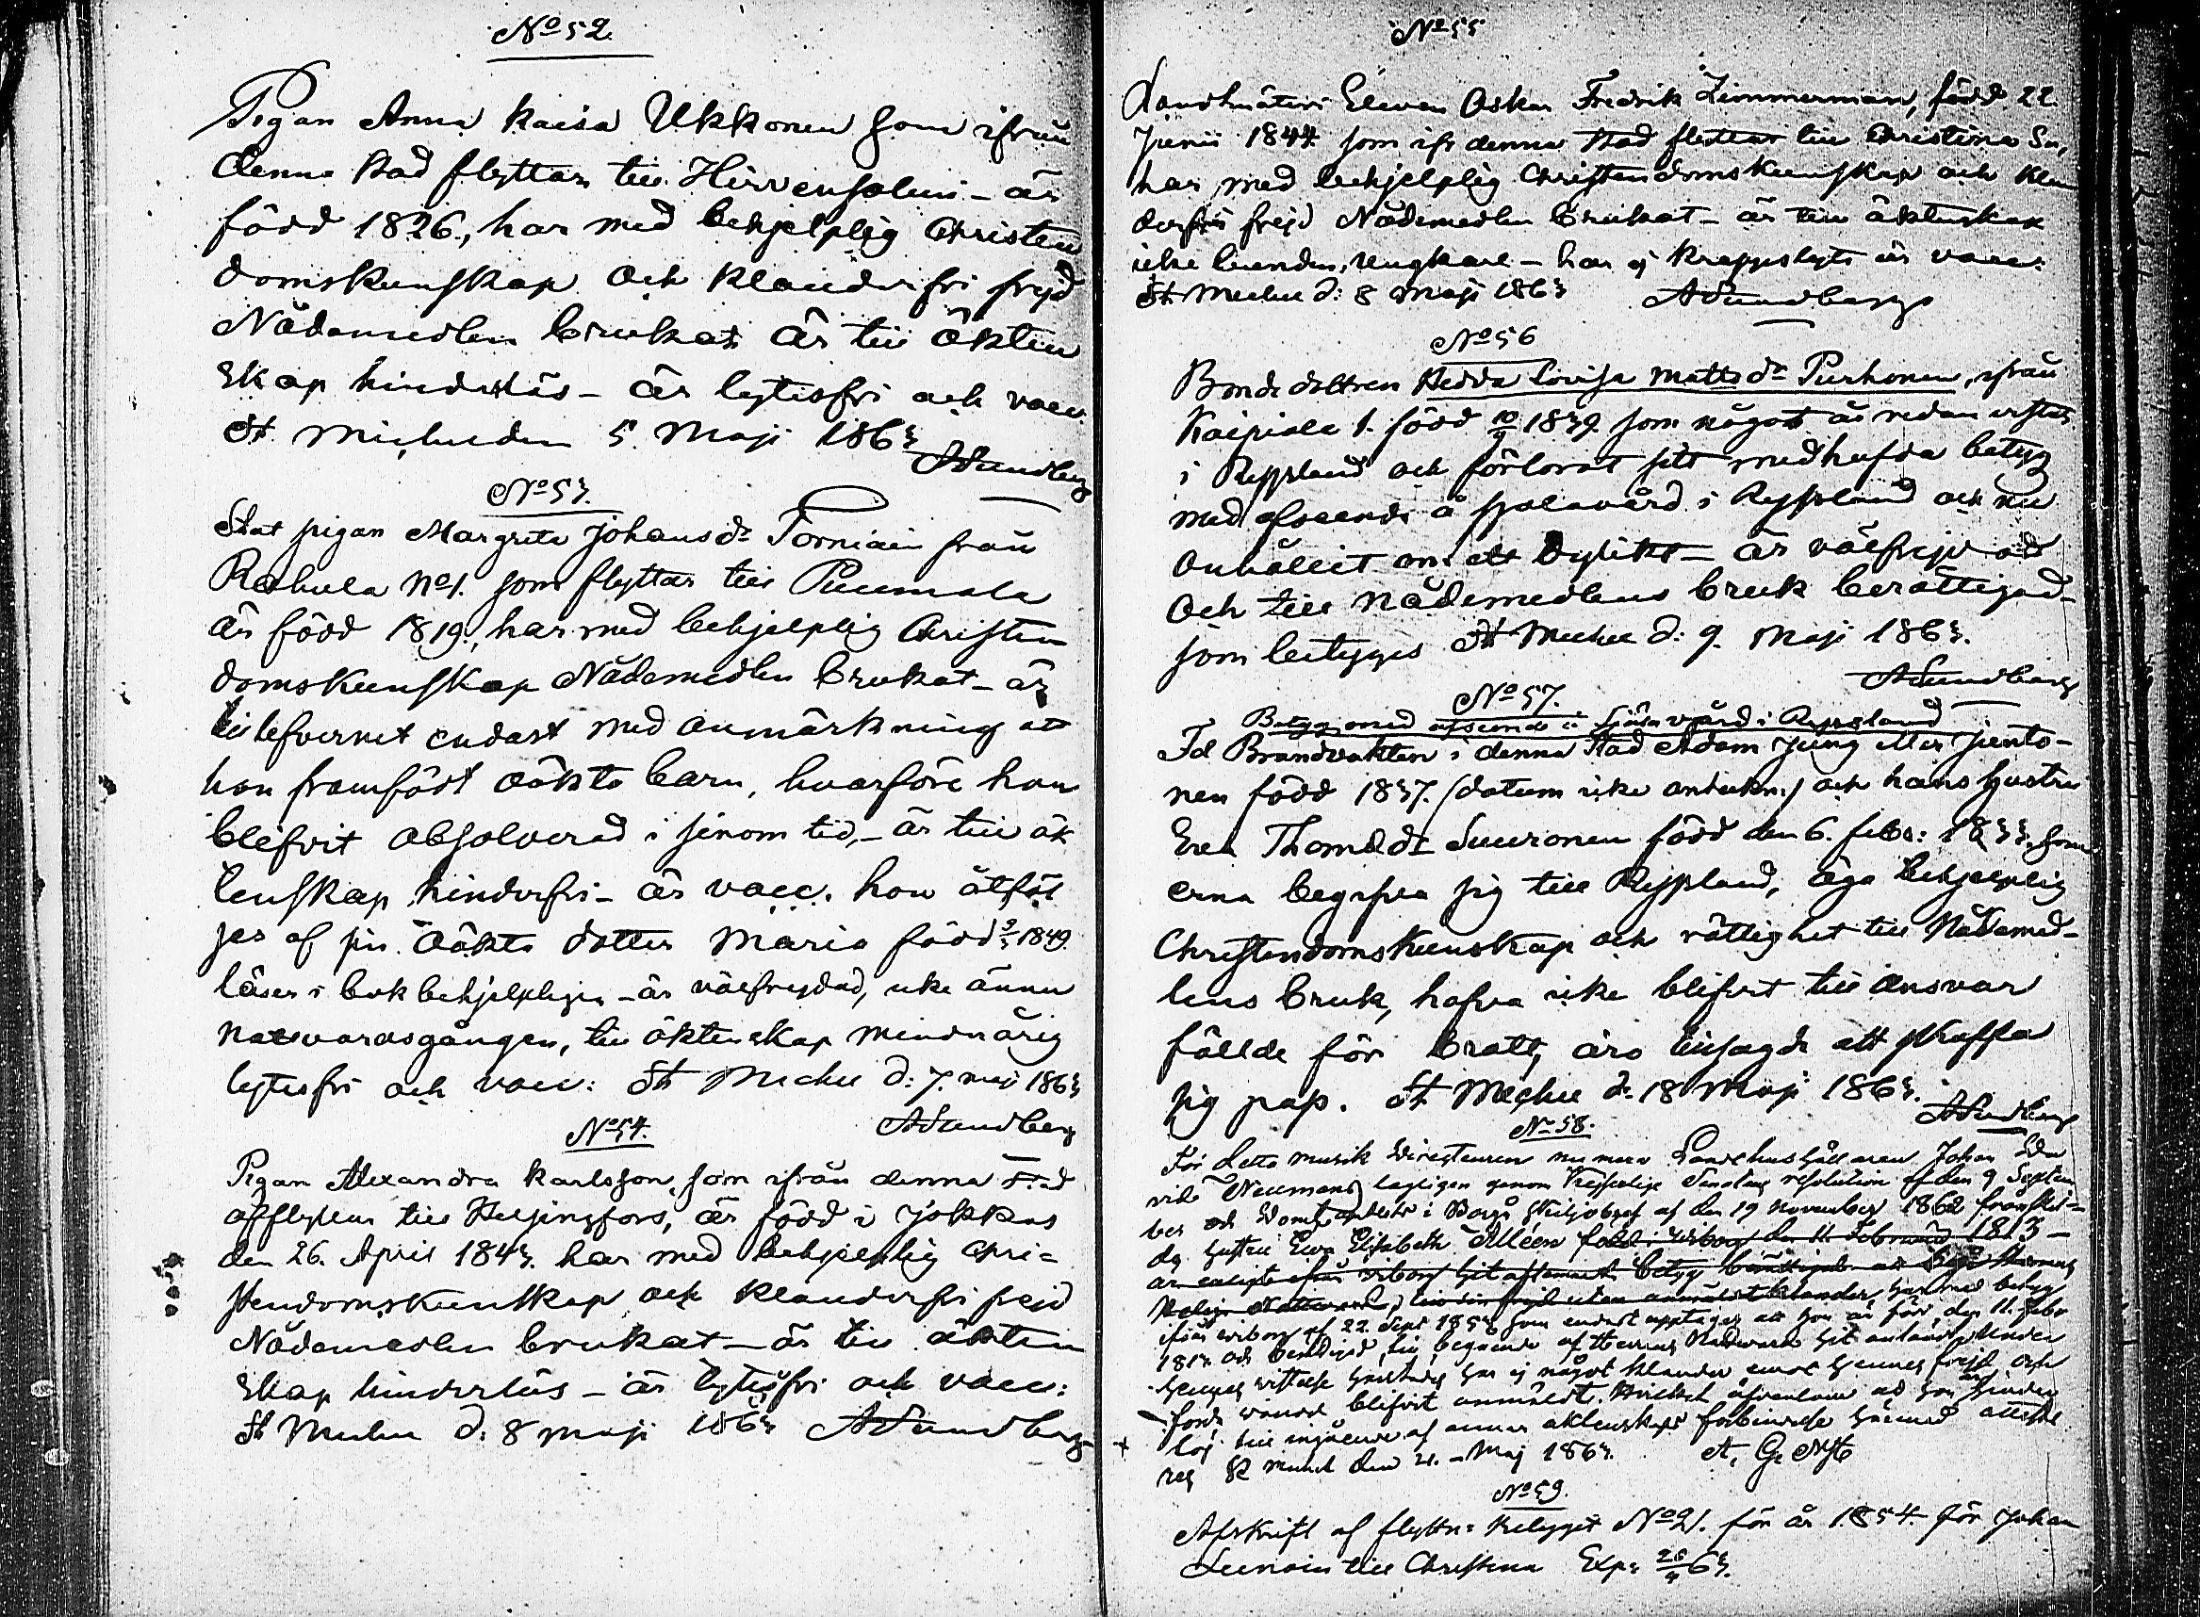 No 52.
Pigan Anna Kaisa Ukkonen som ifrån
denna stad flyttar till Hirvensalmi - är
född 1826, har med behjelplig Christen
domskunskap och klanderfri frejd
Nådemedlen brukat är till ökten
skap hinderlös - är lytesfri och vacc.
St. Michel den 5 Maji 1863
ASundberg
No 53.
Stat pigan Margreta Johansdr Torniain från
Rahula No 1. som flyttar till Puumala
är född 1819, har med behjelplig Christen
domskunskap Nådemedlen brukat - är
till lefvernet endast med anmärkning att
hon framfödt oäkta barn, hvarföre hon
blifvit absolverad i sinom tid, - är till äk
tenskap hinderfri - är vacc. hon åtföl
jes af sin oäkta dotter Maria född 1849
läser i bok behjelpligen - är välfrejdad, icke ännu
nattvardsgången, till äktenskap minderårig
lytesfri och vacc: St Michel d: 7. maj 1863
ASundberg
No 54.
Pigan Alexandra Karlsson, som ifrån denna stad
afflyttar till Helsingfors, är född i Jokkas
den 26. April 1843. har med behjelplig Chri-
stendomskunskap och klanderfri frejd
Nådemedlen brukat - är till äkten
skap hinderlös - är lytesfri och vacc:
St Michel d. 8 maji 1863 ASundberg
No 55
Landtmäteri Eleven Oskar Fredrik Zimmerman, född 22.
Junii 1844 som ifr denna stad flyttar till Christina Sn,
har med behjelplig Christendomskunskap och klan
derfri frejd Nådemedlen brukat - är till äktenskap
icke bunden, ungkarl - har ej kroppslyte är vacc:
St Michel d: 8 Maji 1863 ASundberg
No 56
Bonde dottren Hedda Lovisa Mattsdr Purhonen, ifrån
Kaipiala 1. född 10/9 1839 som något år redan vistats
i Ryssland och förlorat sitt medhafda betyg
med afseende å sjelavård i Ryssland och nu
anhållit om ett dylikt - är välfrejdad
och till nådemedlens bruk berättigad -
som betygges St Michel d: 9. Maji 1863.
ASundberg
No 57.
Betyg med afseende å Själavård i Ryssland
Fd Brandvakten i denna stad Adam Jung eller Junto-
nen född 1837. (datum icke antekn:) och hans hustru
Eva Thomasdr Suuronen född den 6. febr: 1833. som
ärna begifva sig till Ryssland, äga behjelplig
Christendomskunskap och rättighet till Nådemed-
lens bruk, hafva icke blifvit till ansvar
fällde för brott, äro tillsagde att skaffa
sig pass. St Michel d: 18 Maji 1863.
ASundberg
No 58.
För detta musik Direkteuren numera Landthushållaren Johan Da
vid Neumans lagligen genom Kejserliga Senatens resolution af den 9 Septem
ber och Domkapitlets i Borgå skiljobref af den 19 November 1862 frånskil-
da hustru Eva Elisabeth född i Wiborg den 11. Februarii 1813 -
är enligt ifrån Wiborg hit aflemnadt betyg berättigad
Heliga Nattvard, till sin frejd utan anmäldt klander
ifrån Wiborg af 22 Sept som endast upptager att hon är född den 11. febr
1813 och berättigad till begående af Herrens Nattvard hit anländ. Under
hennes vistelse härstädes har ej något klander emot hennes frejd och
förda vandel blifvit anmäldt. Hvilket äfvensom att hon är hinder
lös till ingående af annan äktenskaps förbindelse härmed atteste
ras St Michel den 21. Maj 1863. A. G.
No 59.
Afskrift af flyttn: betyget No 21. för år 1854 för Johan
till Christina Exp: 63.